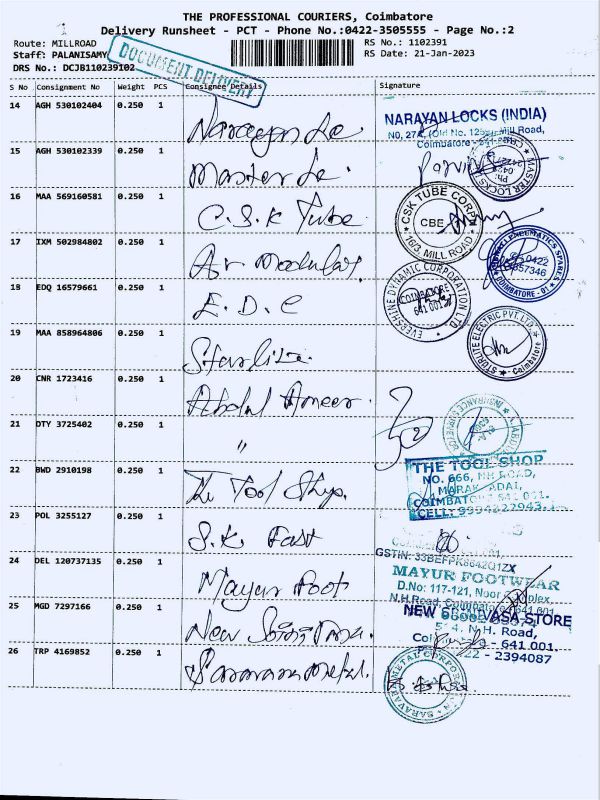 THE PROFESSIONAL COURIERS, Coimbatore
Delivery Runsheet - PCT - Phone No.:0422-3505555 - Page No.:2
Route: MILLROAD
RS No.: 1102391
Staff: PALANISAMY
RS Date: 21-Jan-2023
DRS No.: DCJB110239102
DOCUMENT DELIVERY
S No Consignment No Weight PCS Consignee Details Signature
14 AGH 530102404 0.250 1
Narayan Lo
NARAYAN LOCKS (INDIA)
Mill Road,
Coimbatore
15 AGH 530102339 0.250 1
Master Lo
MASTER LOCKS
16 MAA 569160581 0.250 1
C.S.K Tube
CSK TUBE CORP
CBE
16/3, MILL ROAD
17 IXM 502984802 0.250 1
Ar Modular
PNEUMATICS SPARES
0422
COIMBATORE - 01
18 EDQ 16579661 0.250 1
E.D.C
EVERSHINE DYNAMIC CORPORATION
COIMBATORE
641 001
19 MAA 858964806 0.250 1
Starlite
STURLITE ELECTRIC PVT. LTD.
Coimbatore
20 CNR 1723416 0.250 1
Abdul Ameer
21 DTY 3725402 0.250 1
"
22 BWD 2910198 0.250 1
Tool Shop
THE TOOL SHOP
NO. 666, NH ROAD,
COIMBATORE 641 001.
23 POL 3255127 0.250 1
S.K. Fast
24 DEL 120737135 0.250 1
Mayur Foot
GSTIN: 33BEFPK8642Q1ZX
MAYUR FOOTWEAR
D.No: 117-121, Noor Complex,
N.H.Road, Coimbatore 641 001.
25 MGD 7297166 0.250 1
New
NEW SRINIVASA STORE
N.H. Road,
641 001.
2394087
26 TRP 4169852 0.250 1
Saravana Metal
SARAVANA METAL CORPORATION